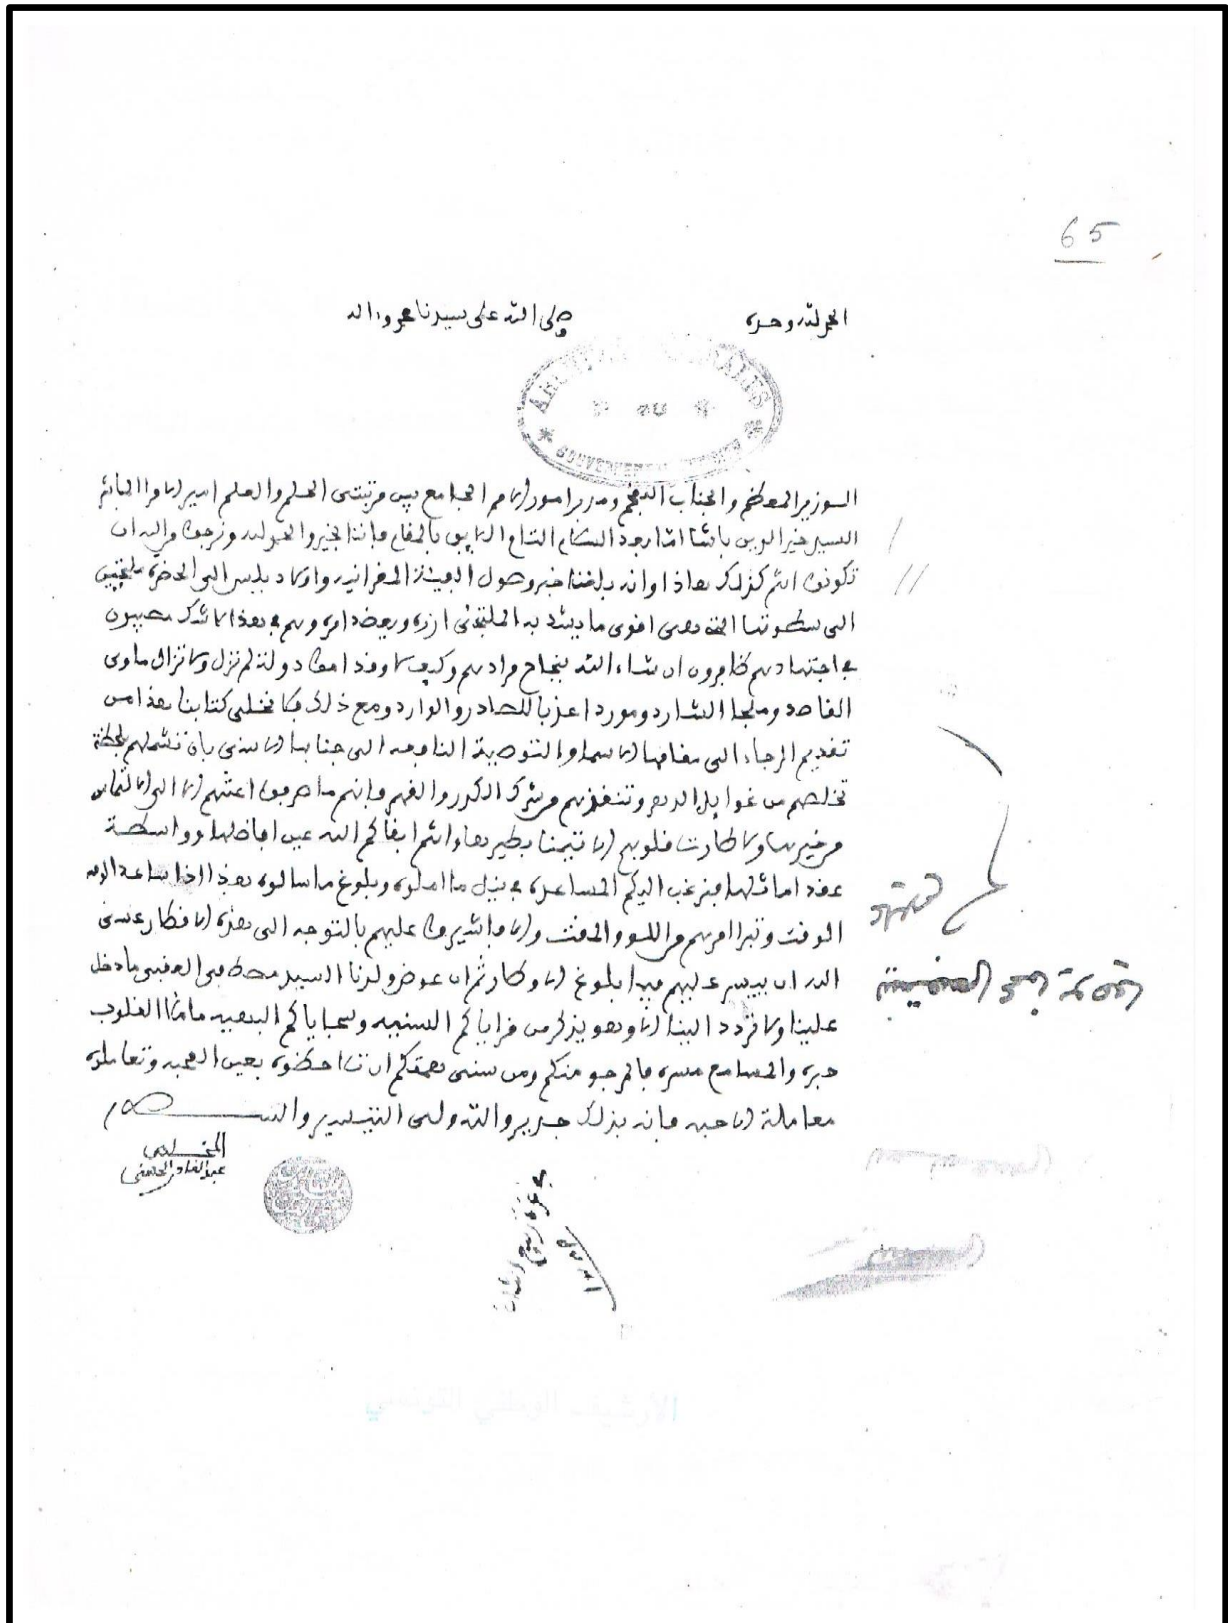 65
الحمد لله وحده
صلى الله على سيدنا محمد واله
ARCHIVES GENERALES
DU
GOUVERNEMENT
الوزير المعظم والجناب المفخم ومدبر امور الانام الجامع بين مرتبتي الحلم والعلم امير الامرا
السيد خير الدين باشا اما بعد السلام التام اللايق بالمقام فاننا بخير والحمد لله ونرجوه من الله ان
تكونوا انتم كذلك هاذا وانه بلغنا خبر وصول المقرانيه واولاد بلبس الى الحضرة ملتجيين
الى سطوتها التي هي اقوى ما يشد به الملتجئ ازره ويعضد امره وهم في هذا لا شك مصيبون
في اجتهادهم ظافرون ان شاء الله بنجاح مرادهم وكيف لا وهذا دولة لم تزل ولا تزال ماوى
القاصد وملجا الشارد وموردا عذبا للصادر والوارد ومع ذلك فلا نخلى كتابنا هذا من
تقديم الرجاء الى مقامها الاسما والتوصية النافعه الى جنابها الاسنى بان تشملهم بلحظة
تخلصهم من غوايل الدهر وتنقذهم من شرك الكدر والقهر فانهم ما صرفوا اعنتهم الا الى التماس
من خيرها ولا طارت قلوبهم الا تيمنا بطيرها وانتم ابقاكم الله عين افاضلها وواسطة
عقد اماثلها فنرغب اليكم المساعدة في نيل ما املوه وبلوغ ما سالوه هذا اذا ساعد
الوقت وتبرا امرهم من اللوم والمقت والا فاشيروا عليهم بالتوجه الى هذه الاقطار عسى
الله ان ييسر عليهم فيها بلوغ الاوطار ثم ان عوض ولدنا السيد مصطفى العقبي ما دخل
علينا ولا تردد الينا الا وهو يذكر من مزاياكم السنيه وسجاياكم البهيه ما ملا القلوب
حبره والمسامع مسره فالمرجو منكم ومن سنى همتكم ان تلاحظوه بعين المحبه وتعاملوه
معاملة الاحبه فانه بذلك جدير والله ولى التيسير والسلام
المخلص
عبد القادر الحسني
في غرة ربيع
الأرشيف الوطني التونسي